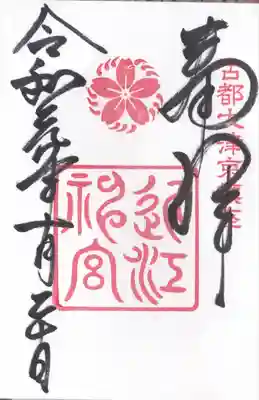 奉拝
古都大津京鎮座
近江
神宮
令和 年 月 日